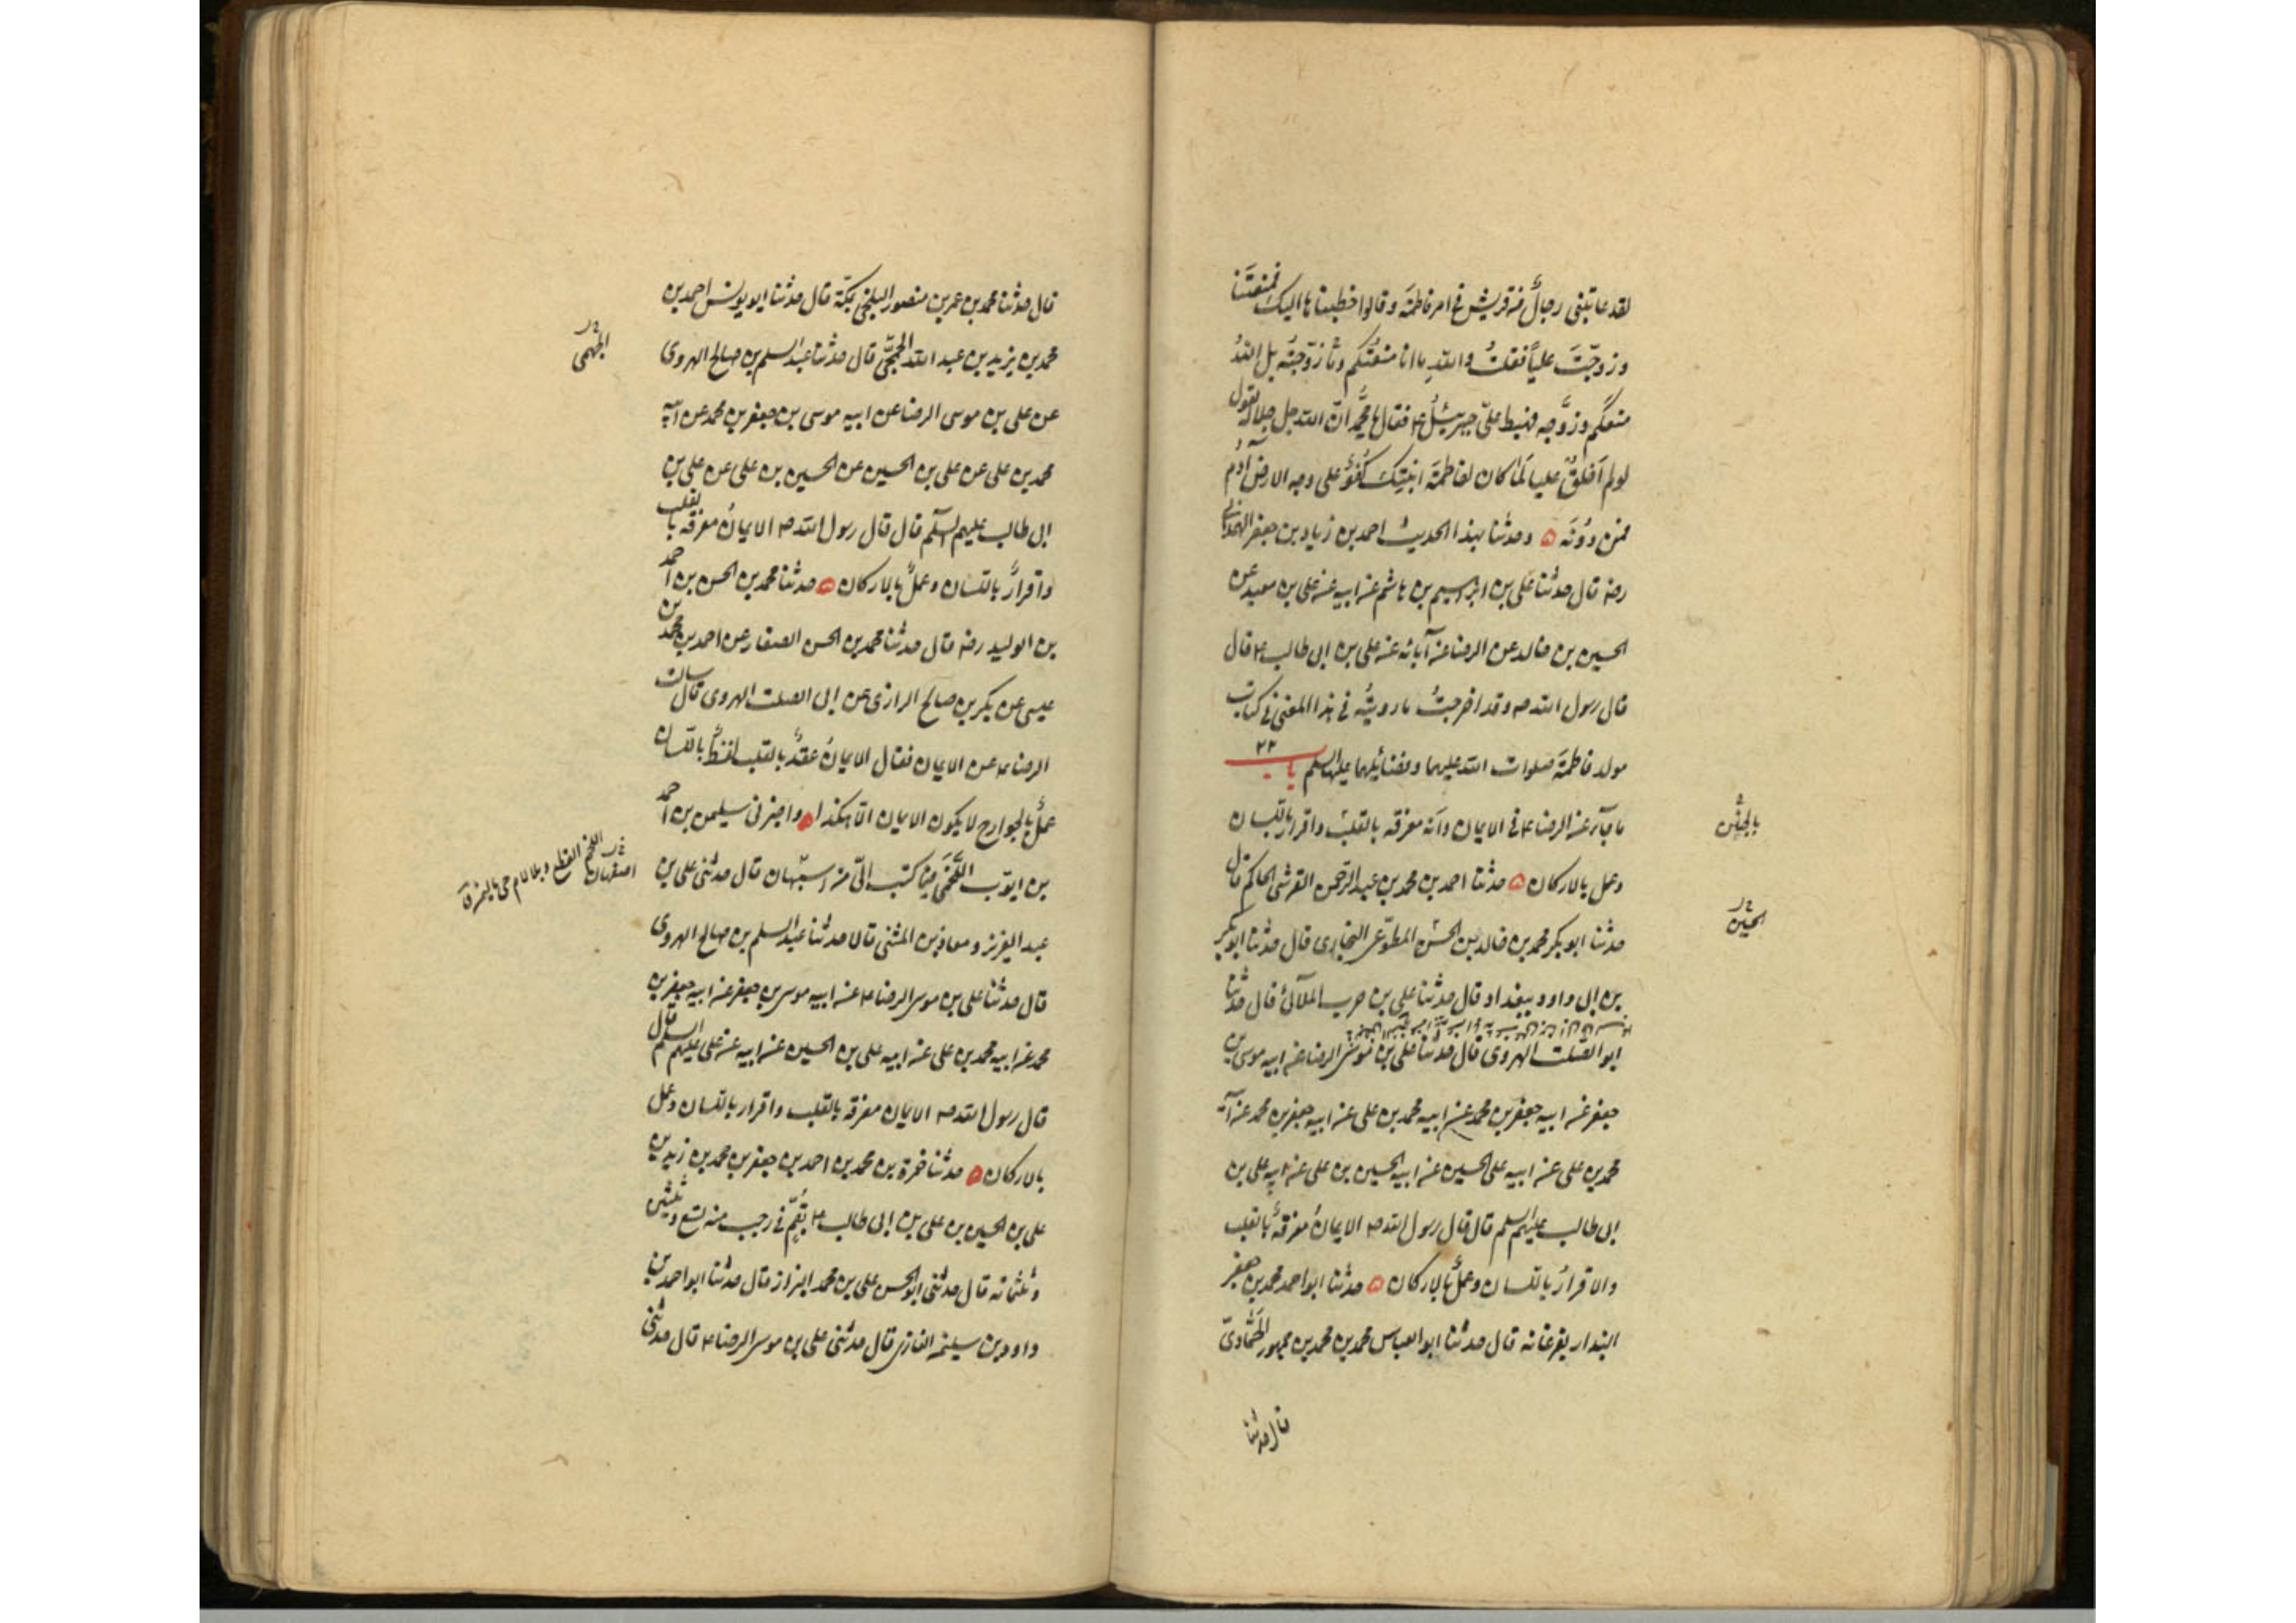 لقد عاتبنی رجالٌ من قریش فی امر فاطمة و قالوا خطبناها الیک فمنعتنا
و زوجّتَ علیاً فقلتُ و اللهِ ما انا منعتُکم و زوّجتُه بل اللهُ
منعکم و زوَّجه فهبط علیّ جبرئیلُ ع فقال یا محمّد انّ الله جل جلاله یقول
لو لم اَخلق علیا لَمٰا کان لفاطمة ابنتِک کُفوٌ علی وجه الارض آدمُ
فمن دُونَه ه و حدثنا بهذا الحدیث احمد بن زیاد بن جعفر الهمدانی
رضه قال حدثنا علی بن ابرهیم بن هاشم عن ابیه عن علی بن معبد عن
الحسین بن خالد عن الرضا عن آبائه عن علی بن ابی طالب ع قال
قال رسول الله ص و قد اخرجتُ ما رویتُه فی هذا المعنی فی کتاب
مولد فاطمة صلوات الله علیها و فضائلها علیها السلم با ٢٢
ما جآء عن الرضا ع فی الایمان و انّه معرفه بالقلب و اقرار باللسان
بالجنان
و عمل بالارکان ه حدثنا احمد بن محمد بن عبد الرحمن القرشی الحاکم قال
حدثنا ابو بکر محمد بن خالد بن الحسن المطوّعی البخاری قال حدثنا ابو بکر
الحسین خ ر
بن ابی داود ببغداد قال حدثنا علی بن حرب الملآئی قال حدثنا
ابو الصلت الهروی قال حدثنا علی بن موسی الرضا عن ابیه موسی بن
جعفر عن ابیه جعفر بن محمد عن ابیه محمد بن علی عن ابیه جعفر بن محمد عن ابیه
محمد بن علی عن ابیه علی الحسین عن ابیه الحسین بن علی عن ابیه علی بن
ابی طالب علیهم السلم قال قال رسول الله ص الایمانُ معرفةٌ بالقلب
و الاقرارُ باللسان و عملٌ بالارکان ه حدثنا ابو احمد محمد بن جعفر
البندار بفرغانه قال حدثنا ابو العباس محمد بن محمد بن جمهور الحَمّادیّ
قال حدثنا
قال حدثنا محمد بن عمر بن منصور البلخی بمکّة قال حدثنا ابو یونس احمد بن
محمد بن یزید بن عبد الله الجمحیّ قال حدثنا عبد السلم بن صالح الهروی
الجهمی خ ر
عن علی بن موسی الرضا عن ابیه موسی بن جعفر بن محمد عن ابیه
محمد بن علی عن علی بن الحسین عن الحسین بن علی عن علی بن
ابی طالب علیهم السلم قال قال رسول الله ص الایمانُ معرفه بالقلب
و اقرارٌ باللسان و عملٌ بالارکان ه حدثنا محمد بن الحسن بن احمد
بن الولید رضه قال حدثنا محمد بن الحسن الصفار عن احمد بن محمد بن
عیسی عن بکر بن صالح الرازی عن ابی الصلت الهروی قال سالت
الرضا ع عن الایمان فقال الایمانُ عقدٌ بالقلب لفظٌ باللسان
عملٌ بالجوارح لا یکون الایمان الّا هکذا ه و اخبرنی سلیمن بن احمد
بن ایوّب اللَّخمی فیما کتب الیّ من اسبهان قال حدثنی علی بن
اصفهان خ ر
عبد العزیز و معاذ بن المثنی قالا حدثنا عبد السلم بن صالح الهروی
قال حدثنا علی بن موسی الرضا ع عن ابیه موسی بن جعفر عن ابیه جعفر بن
محمد عن ابیه محمد بن علی عن ابیه علی بن الحسین عن ابیه عن علی علیهم السلم قال
قال رسول الله ص الایمان معرفه بالقلب و اقرار باللسان و عمل
بالارکان ه حدثنا حمزة بن محمد بن احمد بن جعفر بن محمد بن زید بن
علی بن الحسین بن علی بن ابی طالب ع بقُمّ فی رجب سنه تسع و ثلثین
و ثلثمائه قال حدثنی ابو الحسن علی بن محمد البزاز قال حدثنا ابو احمد بن
داود بن سلیمن الغازی قال حدثنی علی بن موسی الرضا ع قال حدثنی